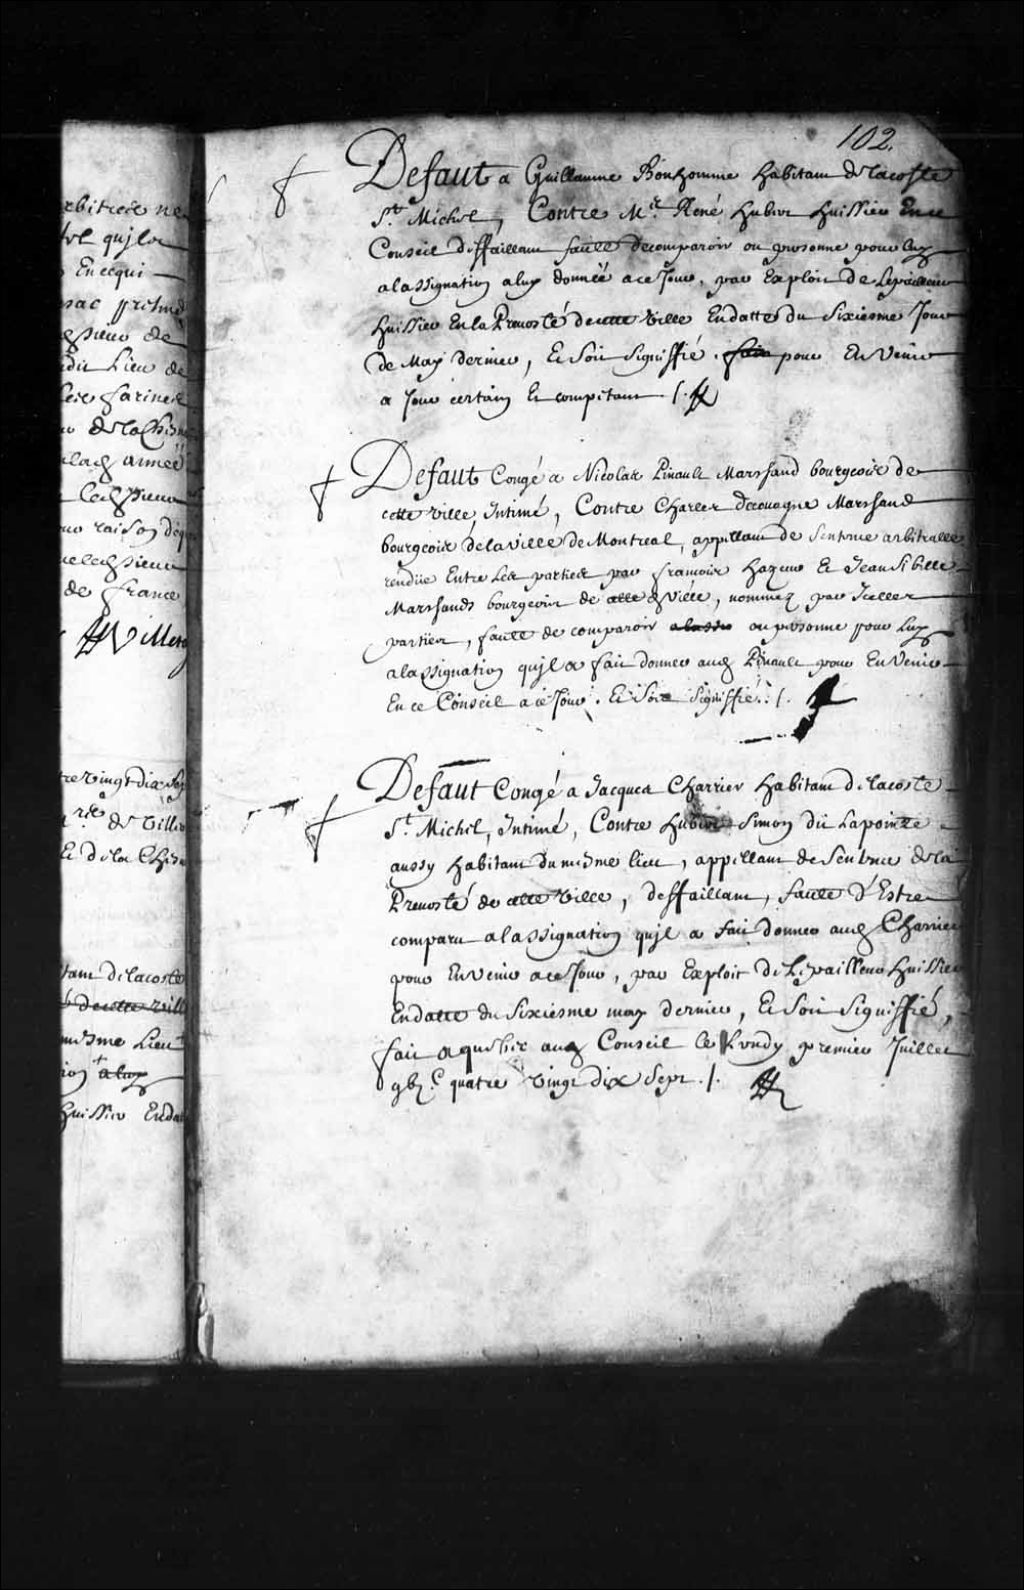 102.
Defaut a Guillaume Bonhomme habitant de lacoste
St. Michel, Contre Me. René hubert huissier En ce
Conseil deffaillant faulte de comparoir ou personne pour luy
a lassignation a luy donnée a ce Jour, par Exploit de Lepailleur
huissier En la Prevosté de cette ville En datte du Sixiesme Jour
de May dernier, Et Soit Signiffié. fait pour En Venir
a Jour certain Et competant ./.
Defaut Congé a Nicolas Pinault Marchand bourgeois de
cette ville, Intimé, Contre Charles decouagne Marchand
bourgeois de la ville de Montreal, appellant de Sentence arbitralle
rendüe Entre Les parties par francois hazeur Et Jean Sibille
Marchands bourgeois de cette de ville, nommez par Icelles
parties, faulte de comparoir a lassi ou personne pour Luy
a lassignation quil a fait donner aud Pinault pour En Venir
En ce Conseil a ce Jour. Et Soit Signiffié. ./.
Defaut Congé a Jacques Charrier habitant de lacoste
St. Michel, Intimé, Contre hubert Simon dit Lapointe
aussy habitant du mesme lieu, appellant de Sentence de la
Prevosté de cette ville, deffaillant, faulte d'Estre
comparu a lassignation quil a fait donner aud Charrier
pour En venir a ce Jour, par Exploit de Lepailleur huissier
En datte du Sixiesme may dernier, Et Soit Signiffié,
fait a quebec aud Conseil le Lundy premier Juillet
gbj.c quatre vingt dix Sept ./.
rbitrée ne
quil a
En ce qui
de france
Villeray
tre vingt dix Sep
re de Villier
Et de la Chesn
tant de lacoste
de cette vill
mesme Lieu
a luy
huissier En da